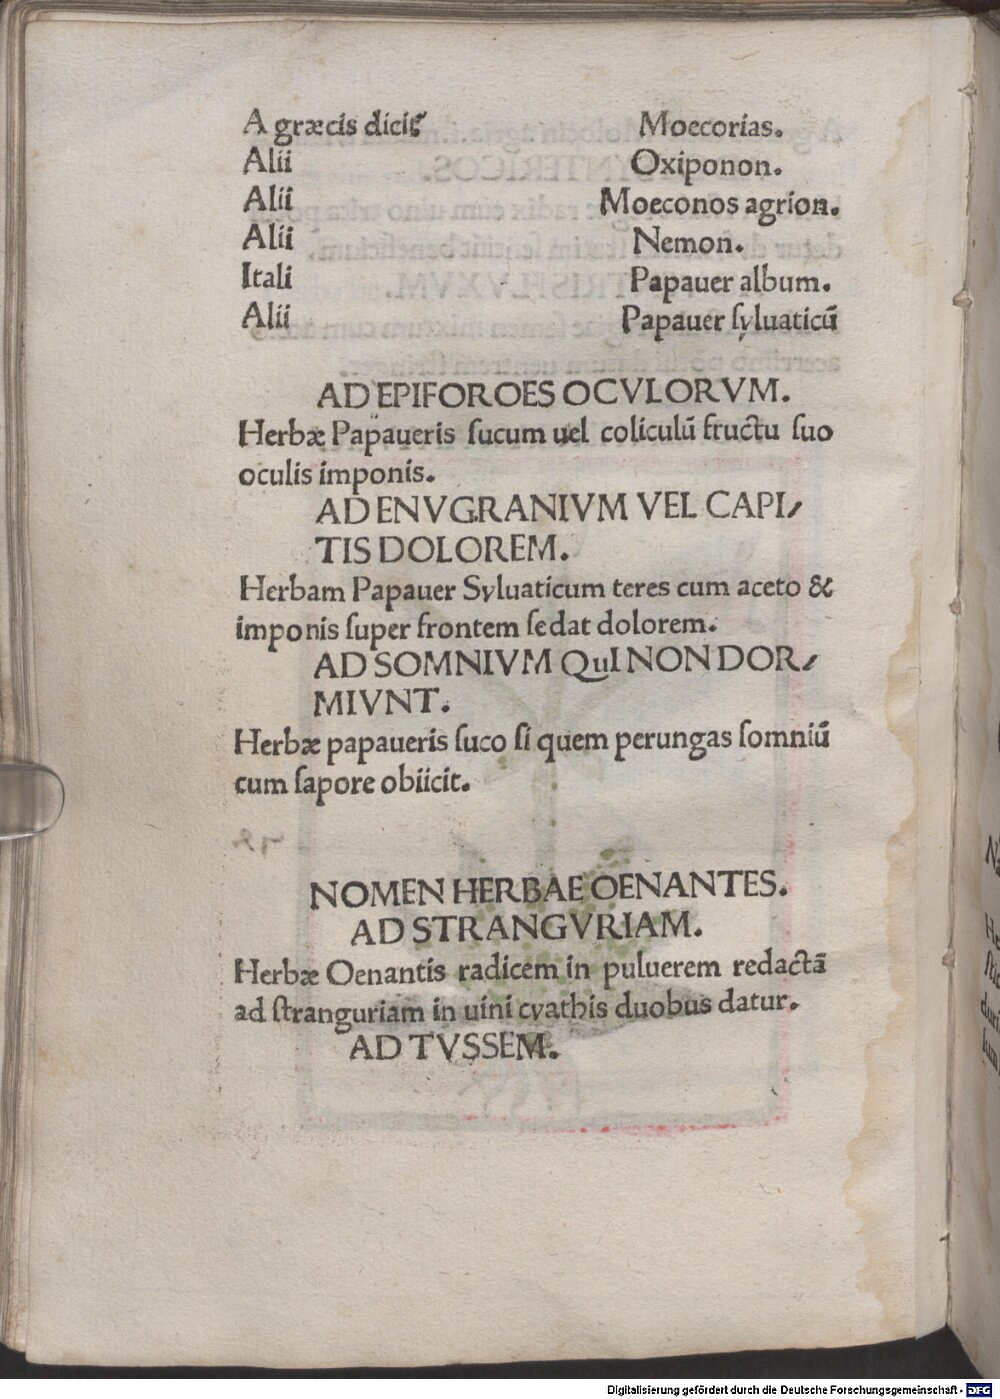 A græcis dicit᷑ Moecorias.
Alii Oxiponon.
Alii Moeconos agrion.
Alii Nemon.
Itali Papauer album.
Alii Papauer ſyluaticū
AD EPIFOROES OCVLORVM.
Herbæ Papaueris ſucum uel coliculū fructu ſuo
oculis imponis.
AD ENVGRANIVM VEL CAPI/
TIS DOLOREM.
Herbam Papauer Syluaticum teres cum aceto &
imponis ſuper frontem ſedat dolorem.
AD SOMNIVM QuI NON DOR/
MIVNT.
Herbæ papaueris ſuco ſi quem perungas ſomniū
cum ſapore obiicit.
NOMEN HERBAE OENANTES.
AD STRANGVRIAM.
Herbæ Oenantis radicem in puluerem redactā
ad ſtranguriam in uini cyathis duobus datur.
AD TVSSEM.
Digitalisierung gefördert durch die Deutsche Forschungsgemeinschaft - DFG